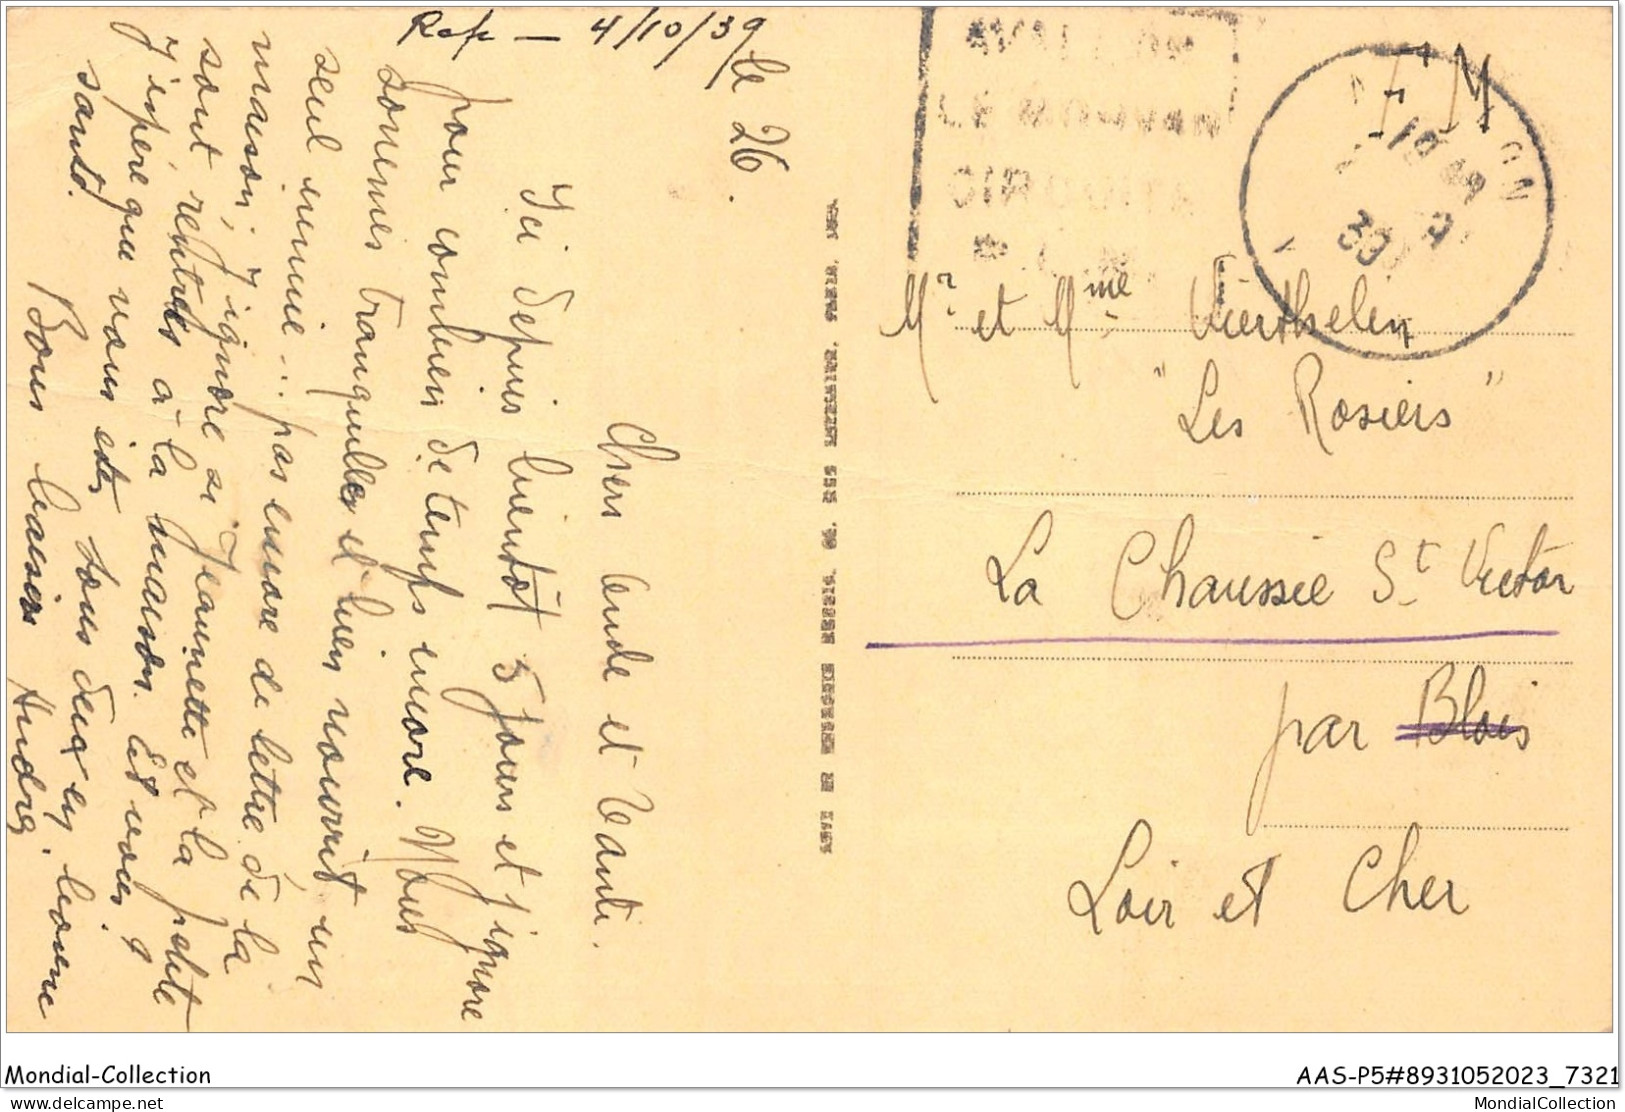 Rep – 4/10/39
le 26.
Chers Aude et Tanti.
Ici depuis bientôt 5 jours et j'ignore
pour combien de temps encore. Nous
sommes tranquilles et bien nourrit un
seul ennuie... pas encore de lettre de la
maison, j'ignore si Jeannette et la petite
sont rentrés à la maison. Et vous?
J'espère que vous êtes tous deux en bonne
santé.
Bons baisers André.
AVALLON
LE MORVAN
CIRCUITS
F.M
19 39
Mr et Mme Vierthelin
"Les Rosiers"
La Chaussée St Victor
par Blois
Loir et Cher
Mondial-Collection
AAS-P5#8931052023_7321
delcampe.net
MondialCollection